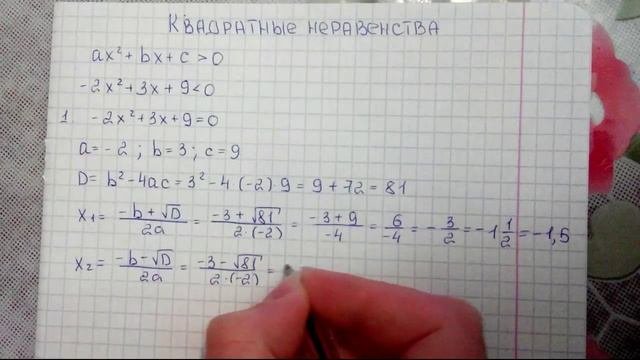 Квадратные неравенства
ax² + bx + c > 0
-2x² + 3x + 9 < 0
1 -2x² + 3x + 9 = 0
a = -2 ; b = 3 ; c = 9
D = b² - 4ac = 3² - 4·(-2)·9 = 9 + 72 = 81
x₁ = (-b + √D)/(2a) = (-3 + √81)/(2·(-2)) = (-3 + 9)/(-4) = 6/(-4) = -3/2 = -1 1/2 = -1,5
x₂ = (-b - √D)/(2a) = (-3 - √81)/(2·(-2)) =